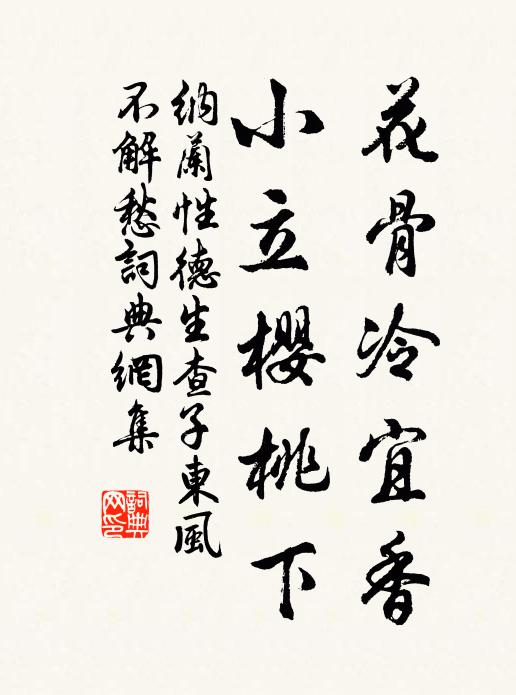 花骨冷宜香
小立櫻桃下
納蘭性德生查子東風
不解愁詞典網集
詞典网印